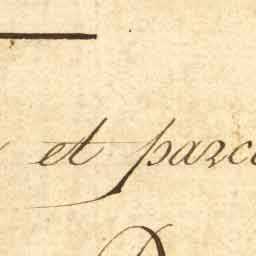 et parc